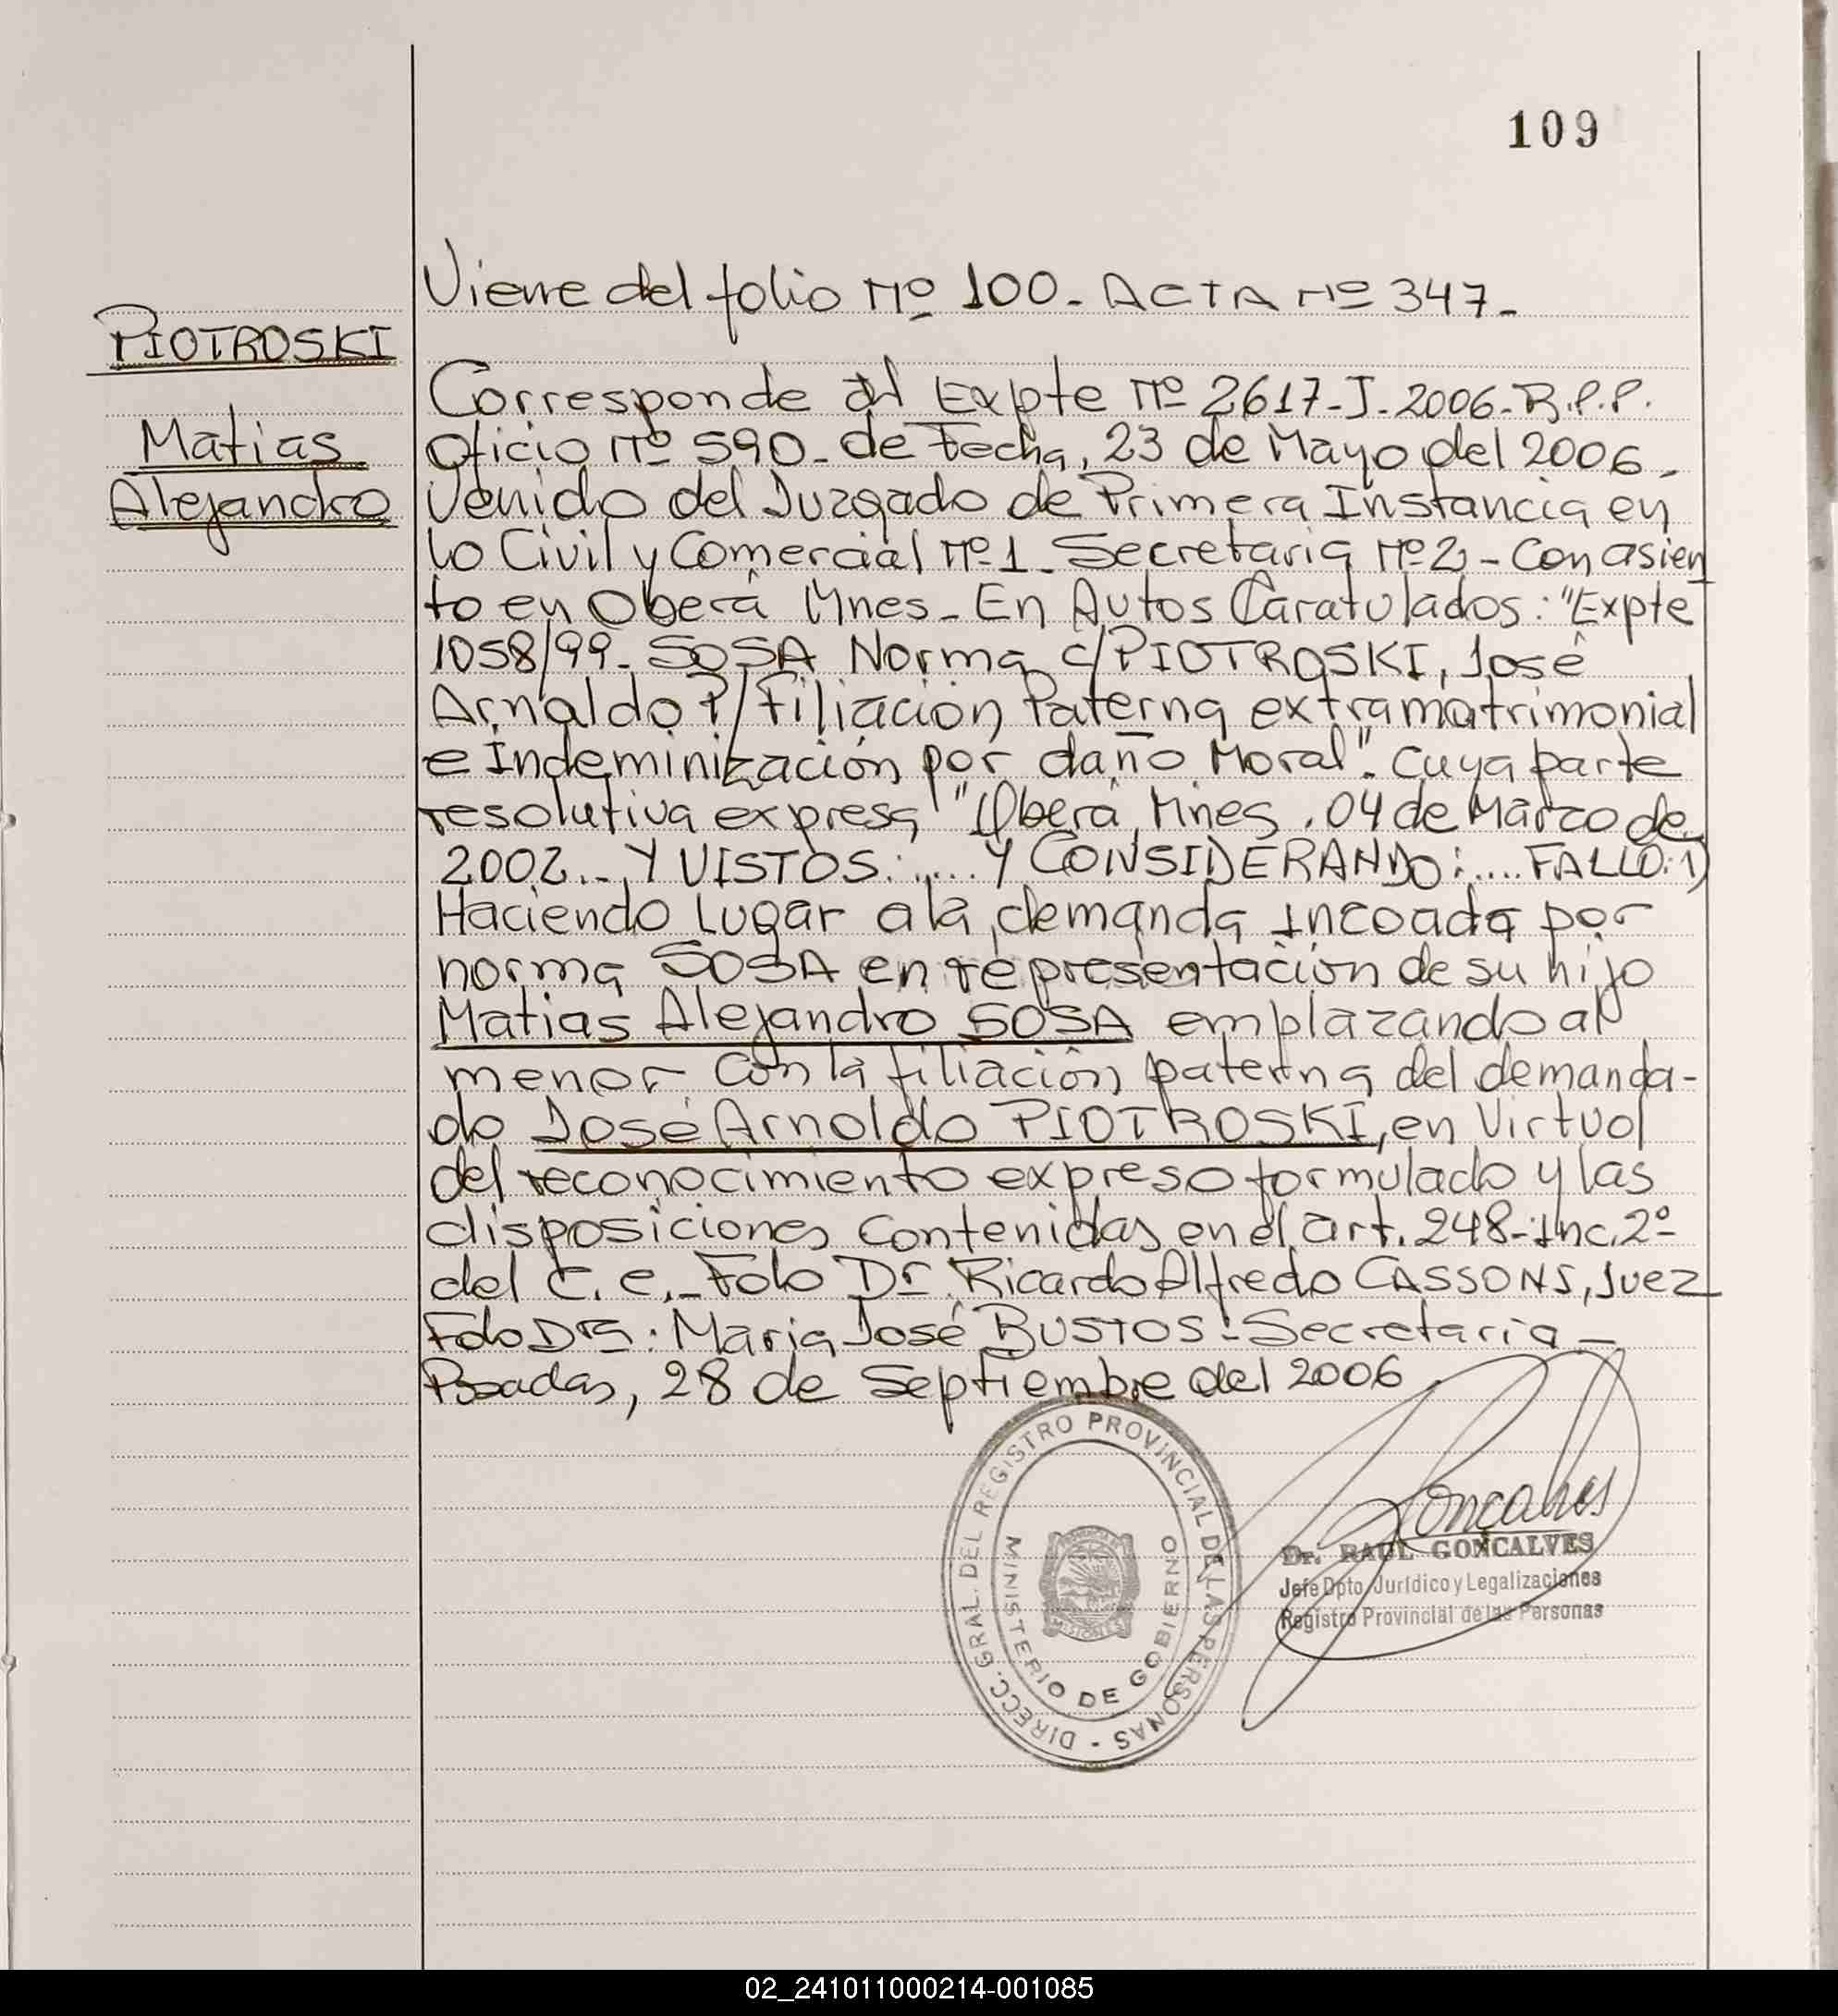 109
Viene del folio Nº 100. ACTA Nº 347.
PIOTROSKI
Matias
Alejandro
Corresponde al Expte Nº 2617-J-2006-R.P.P.
Oficio Nº 590- de Fecha, 23 de Mayo del 2006.
Venido del Juzgado de Primera Instancia en
lo Civil y Comercial Nº 1. Secretaria Nº 2 - Con asien
to en Oberá Mnes- En Autos Caratulados: "Expte
1058/99- SOSA Norma c/PIOTROSKI, José
Arnaldo P/Filiación Paterna extramatrimonial
e Indeminización por daño Moral". Cuya parte
resolutiva expresa "Oberá, Mnes, 04 de Marzo de
2002... Y VISTOS:..... Y CONSIDERANDO:.... FALLO: 1)
Haciendo Lugar a la demanda incoada por
norma SOSA en representación de su hijo
Matias Alejandro SOSA emplazando al
menor con la filiación paterna del demanda-
do José Arnoldo PIOTROSKI, en Virtud
del reconocimiento expreso formulado y las
disposiciones Contenidas en el art. 248-inc. 2º
del C. C.- Fdo Dr. Ricardo Alfredo CASSONS, Juez
Fdo Dra: Maria José BUSTOS- Secretaria-
Posadas, 28 de Septiembre del 2006
DIRECC. GRAL. DEL REGISTRO PROVINCIAL DE LAS PERSONAS -
MINISTERIO DE GOBIERNO
MISIONES
Goncalves
Dr. RAUL GONCALVES
Jefe Dpto. Jurídico y Legalizaciones
Registro Provincial de las Personas
02_241011000214-001085